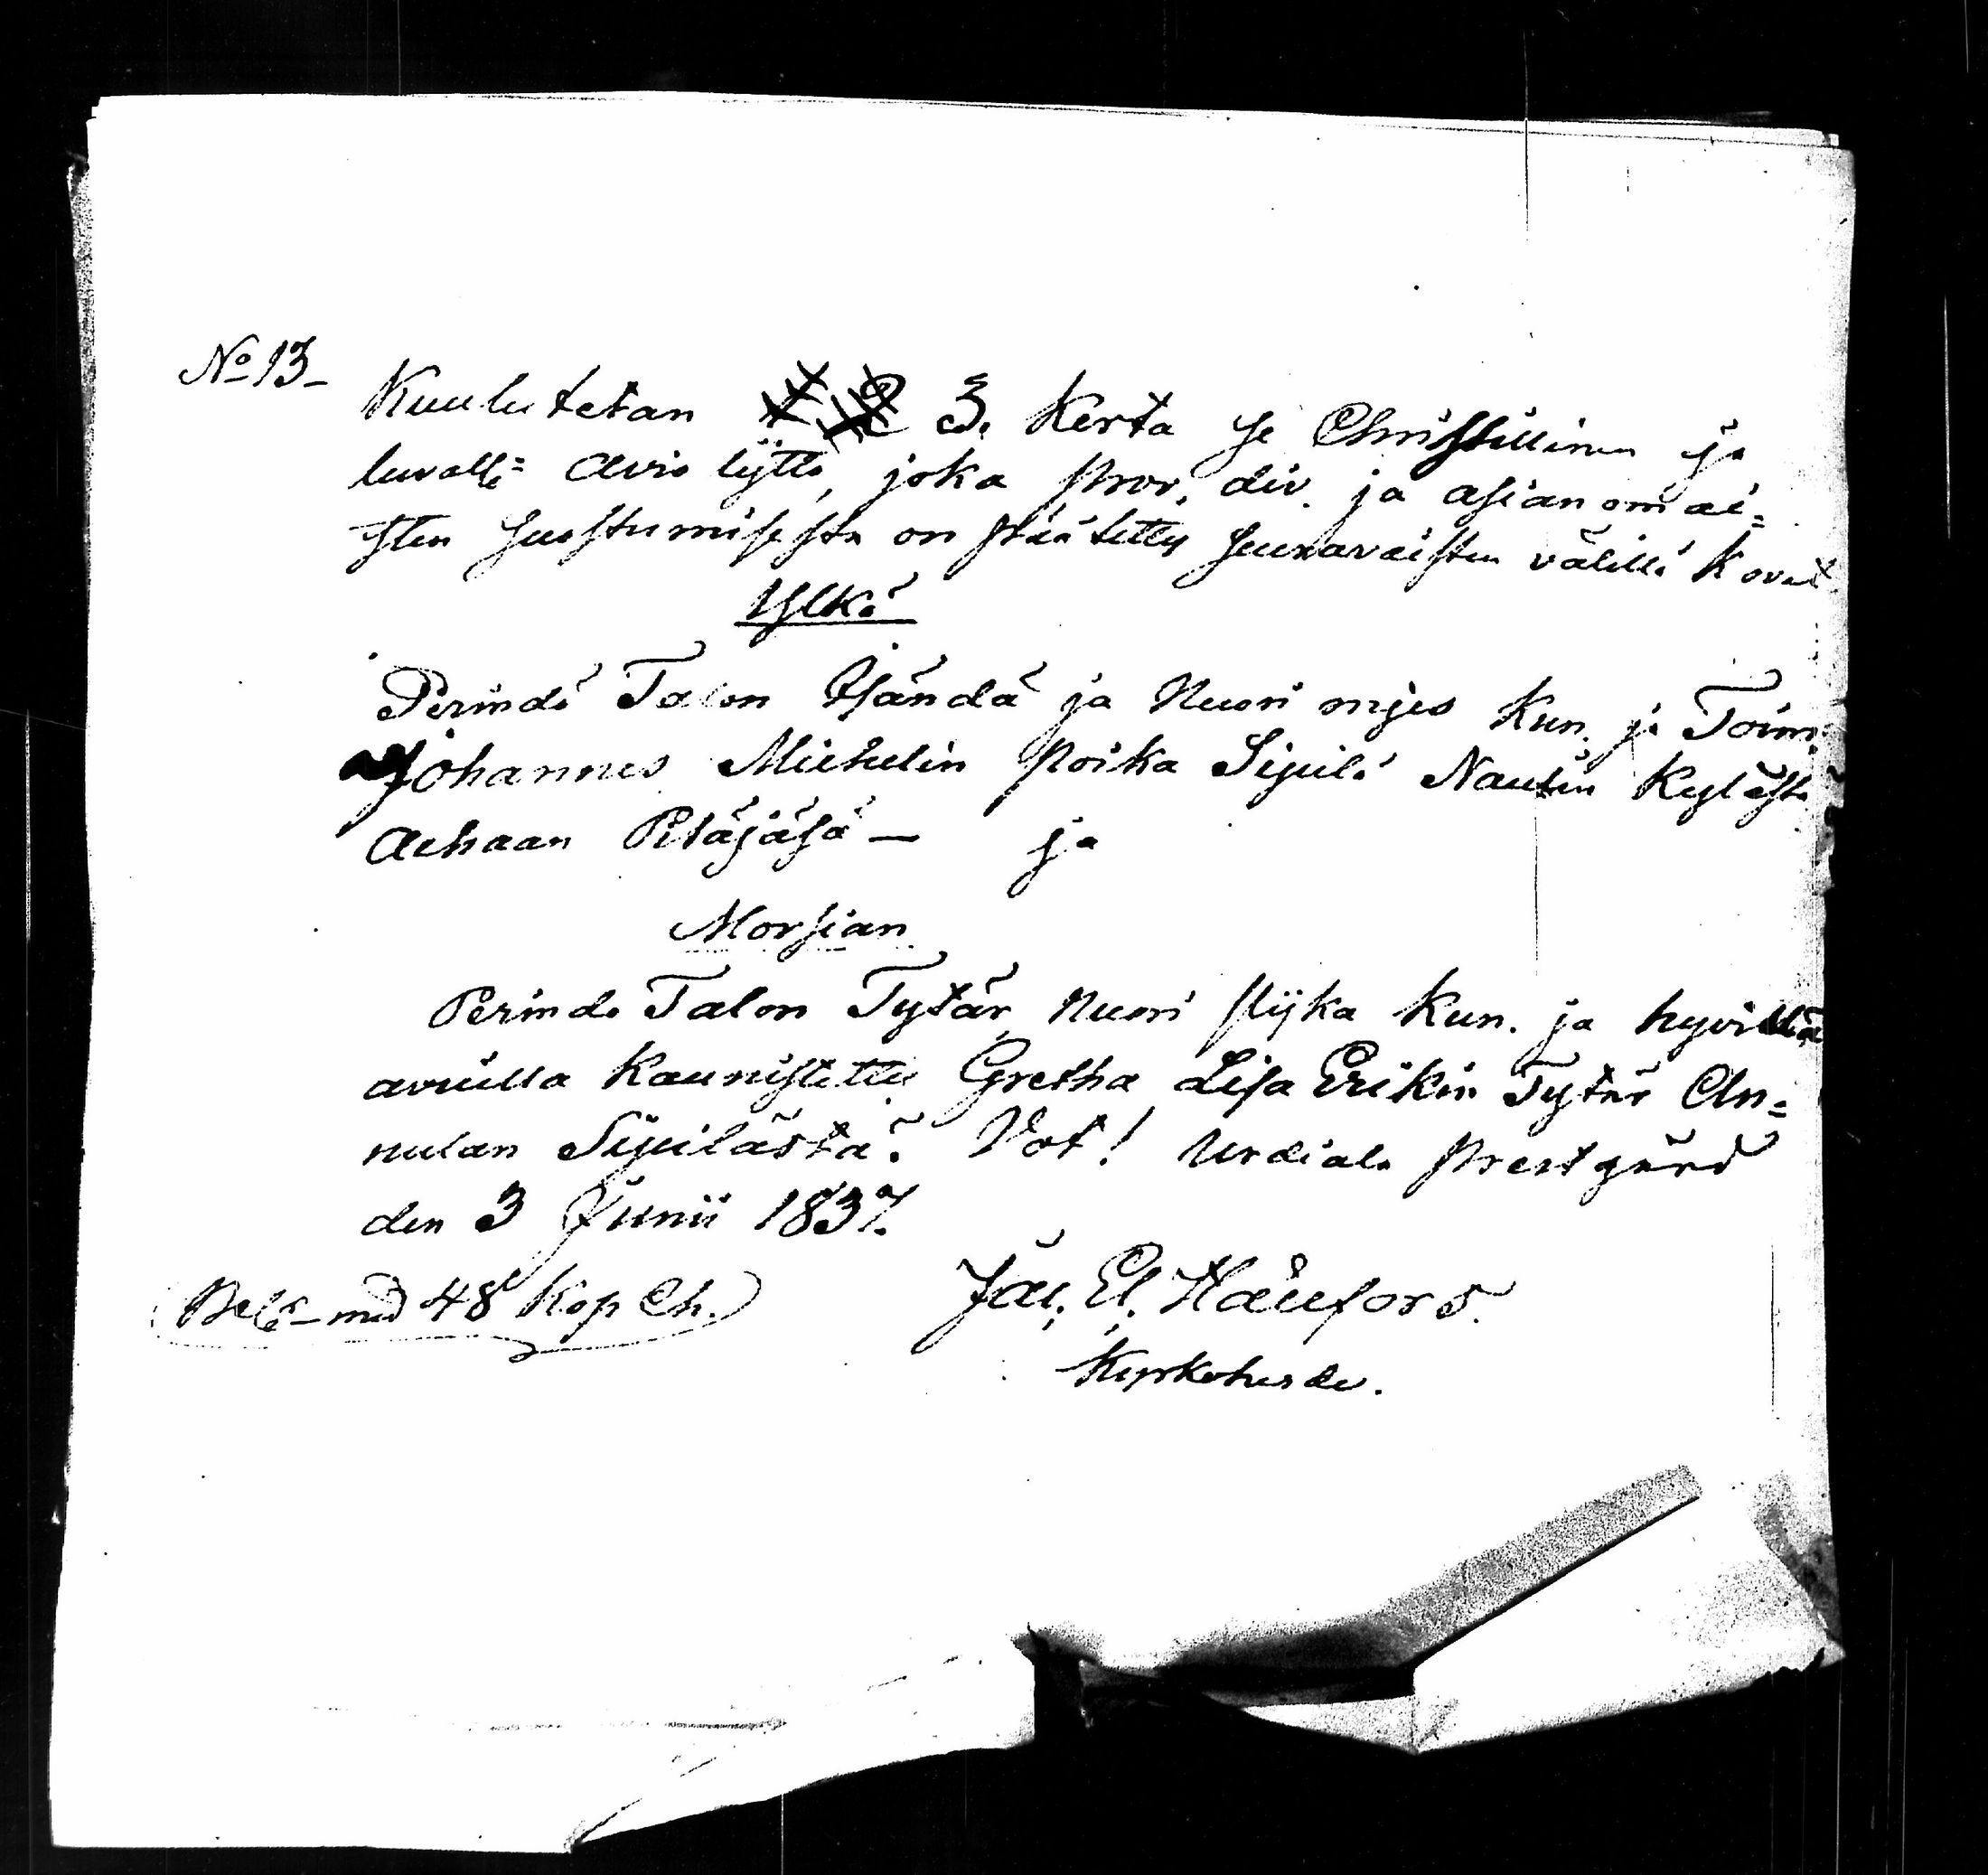 No 13_ Kuulutetan 1. 2 3. Kerta se Christillinen ja
luvallı= Avio lijtto, joka prov. div. ja asianomai=
sten suostumisesta on päätetty seuravaisten välillä k ovat
Ylkä
Perindö Talon Isändä ja Nuori mjes Kun. ja Toim:
Johannes Michelin poika Sipilä Nautin Kylästä
Achaan Pitäjäsä — ja
Morsian
Perindö Talon Tytär, Nuori pijka Kun. ja hyvillä
avuilla Kaunistettu Gretha Lisa Erikin Tytär An=
nulan Sipilästä. Vot! Urdiala prestgård
den 3 Junii 1837.
med 48 Kop Ch.
Kyrkoherde.